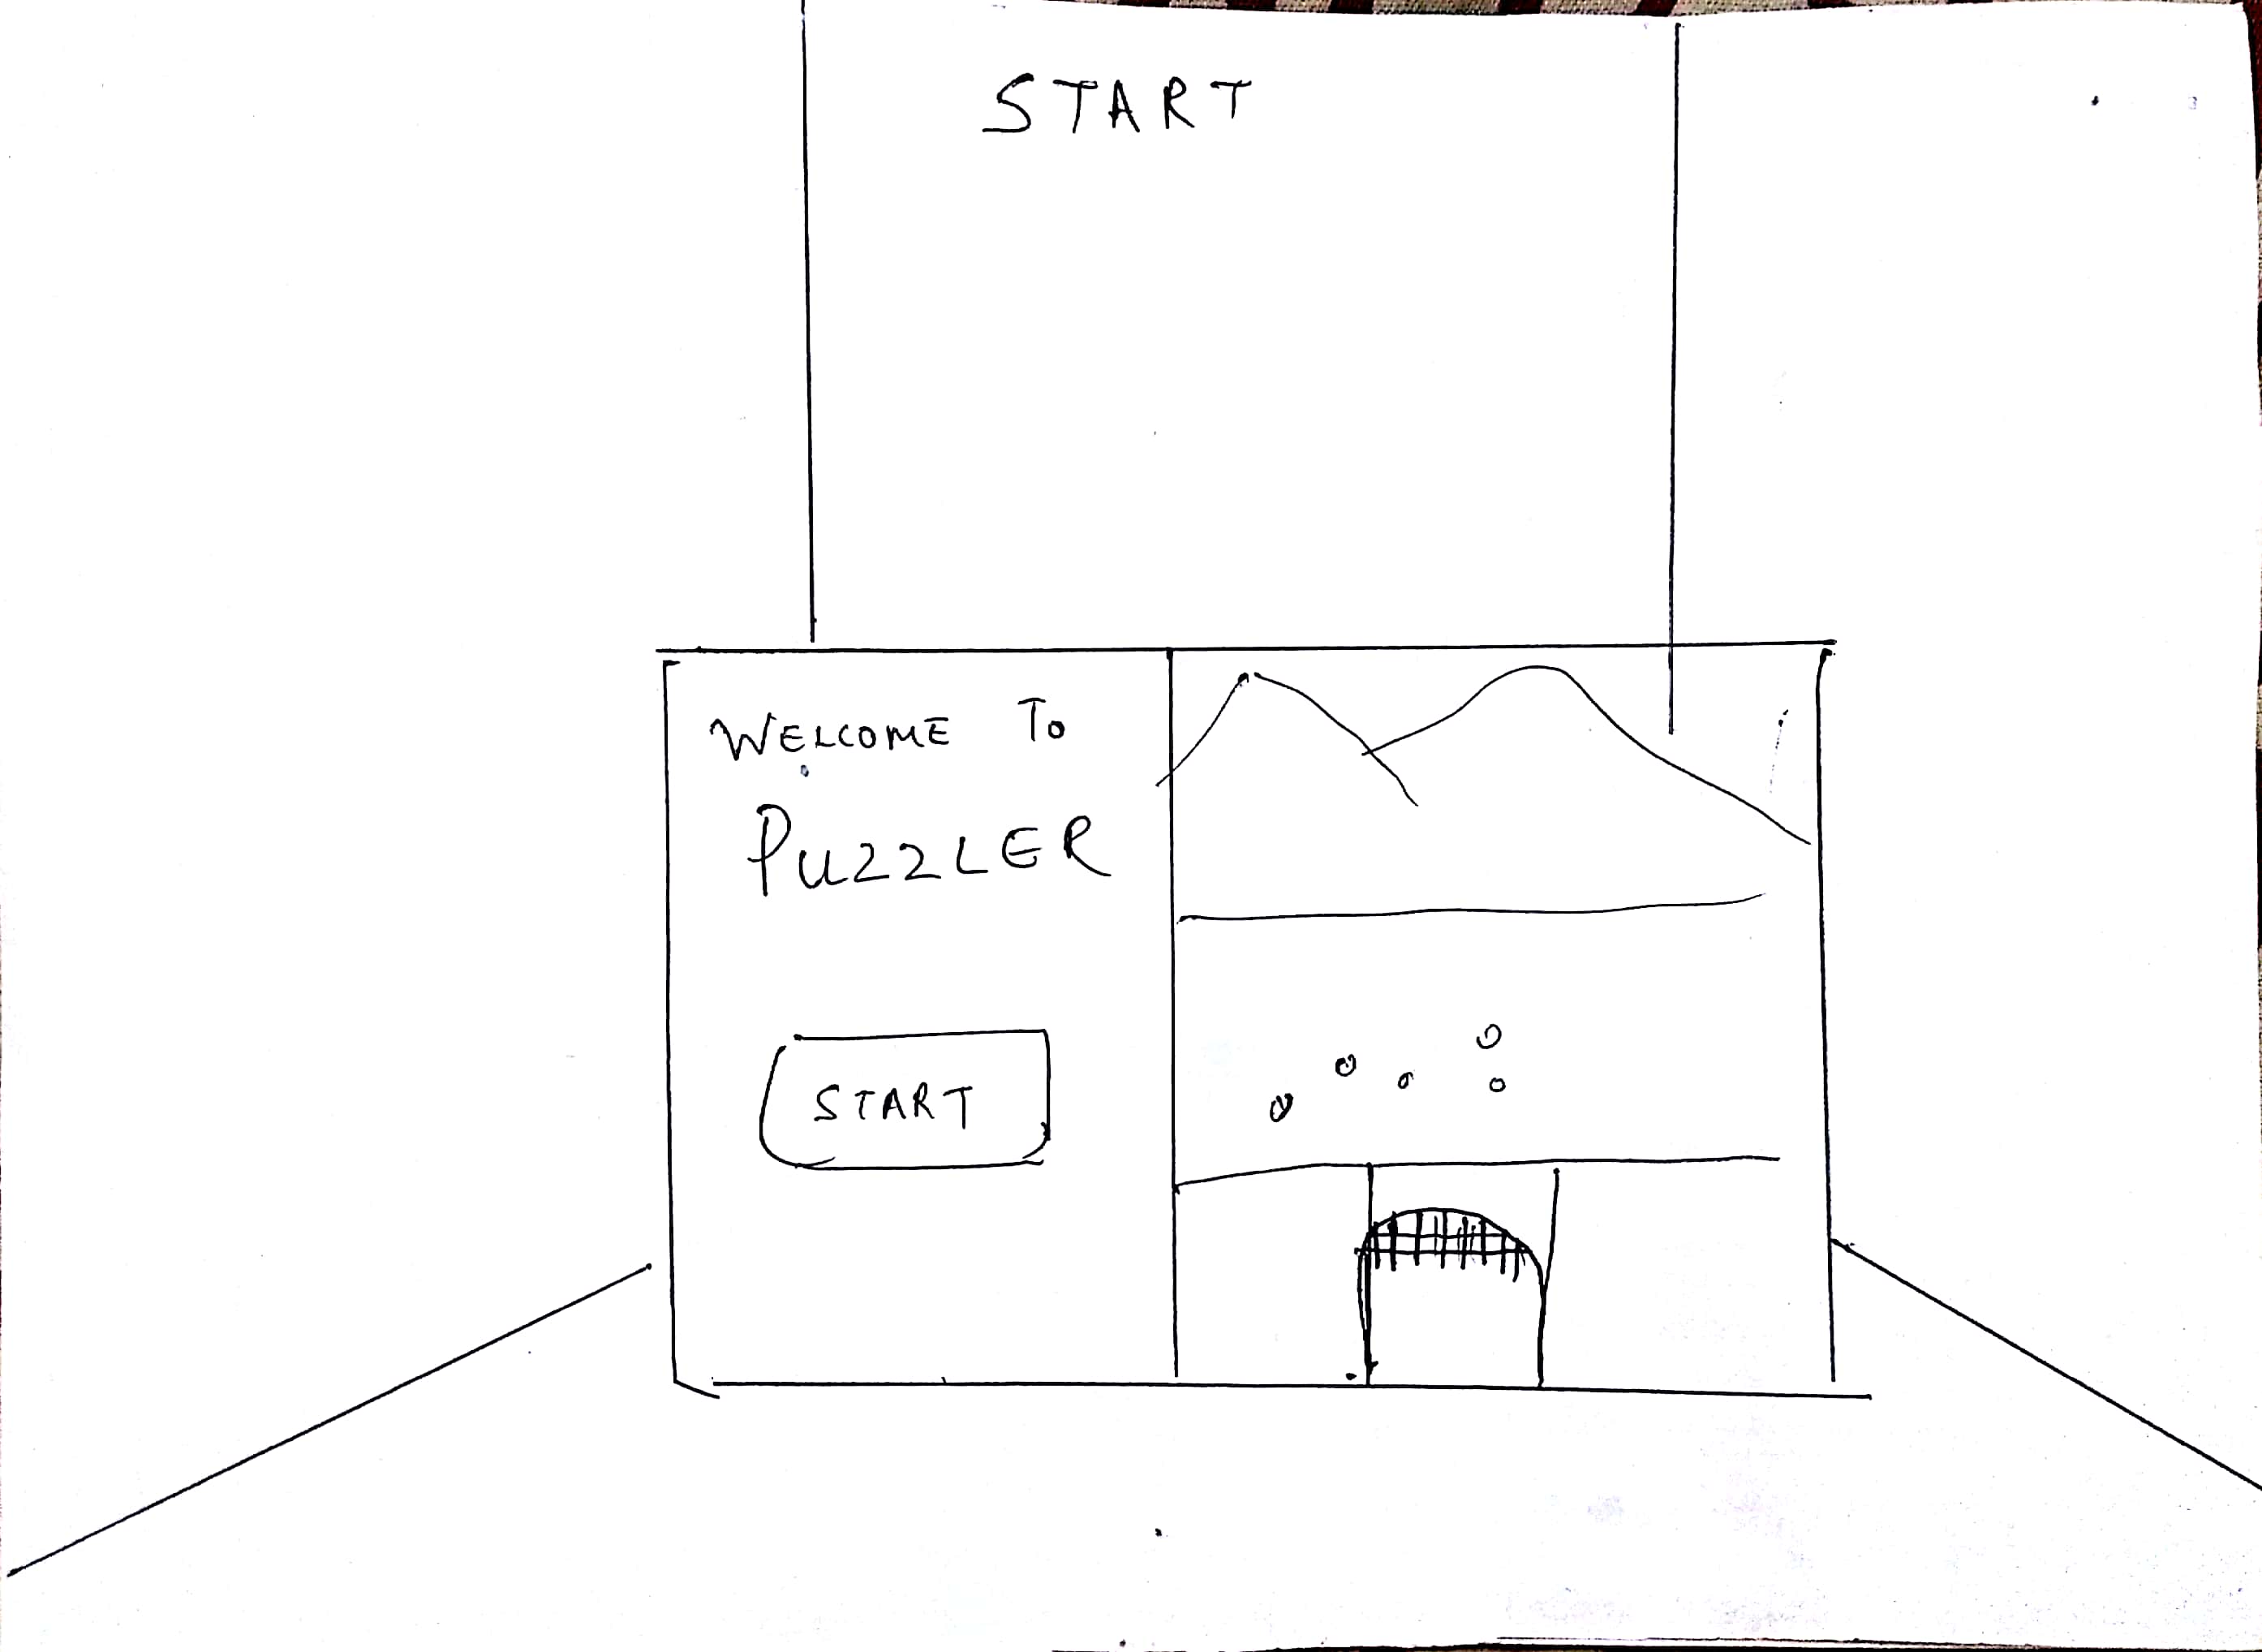 START
WELCOME TO
PUZZLER
START